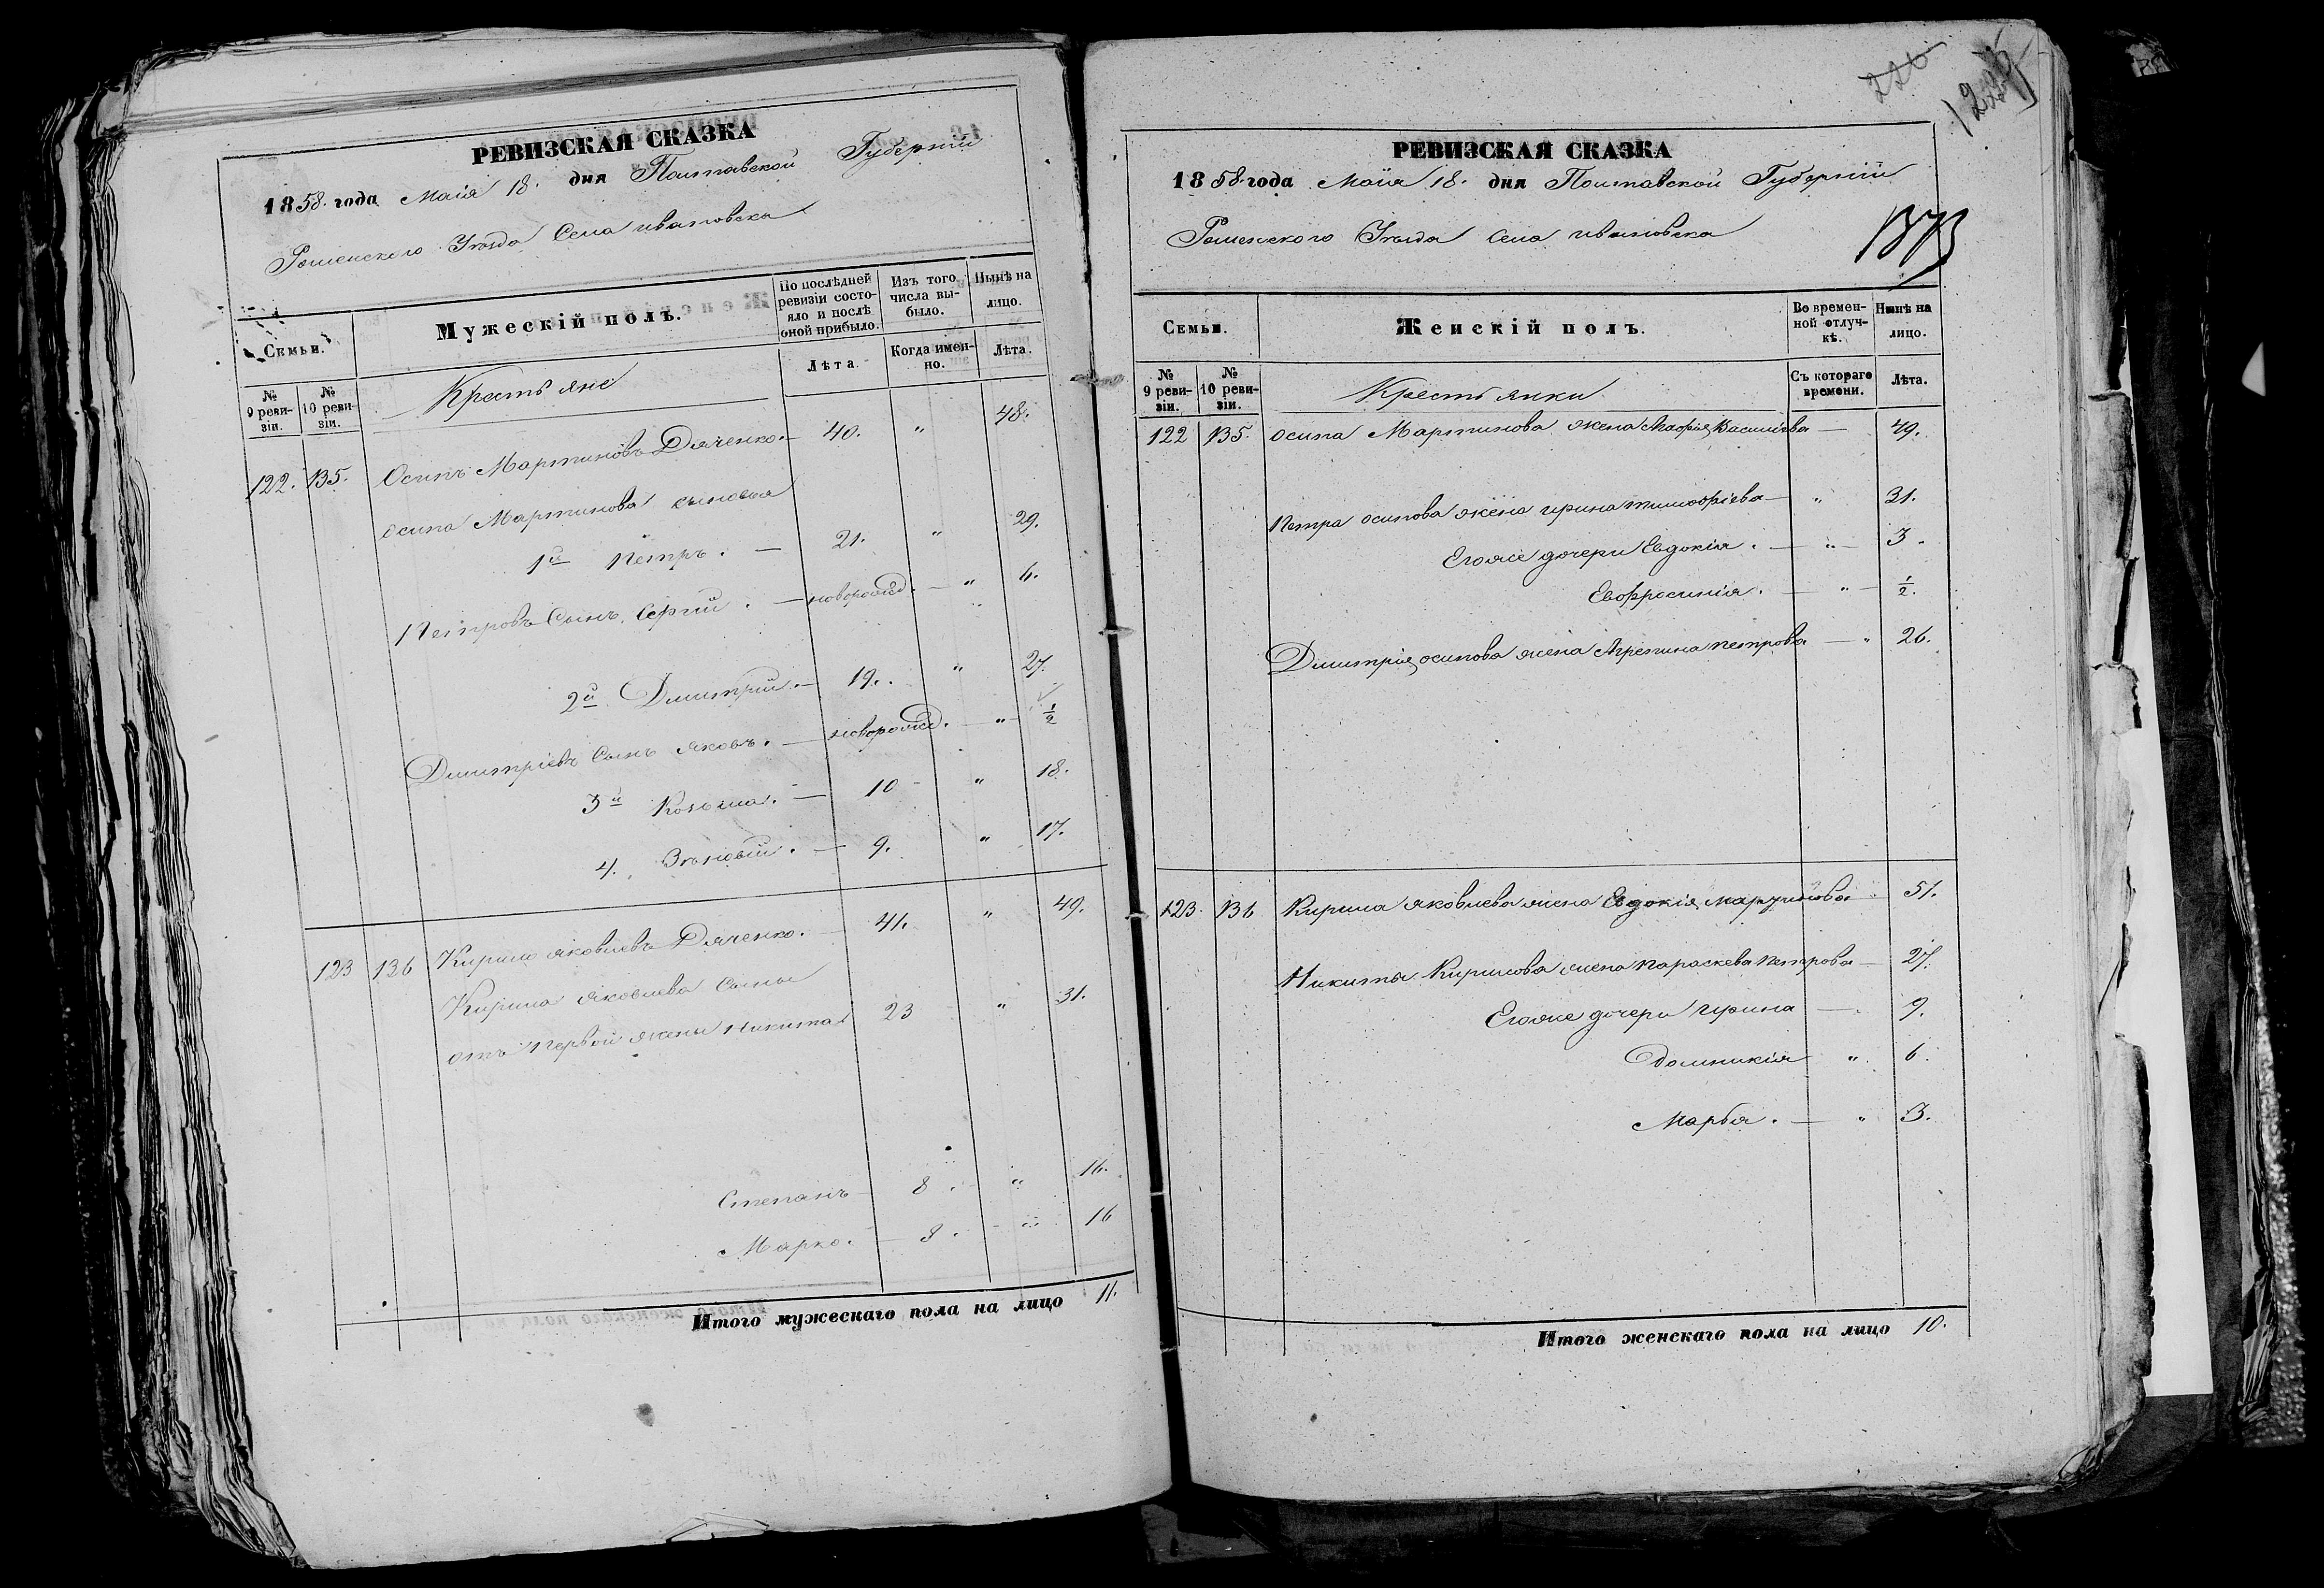 РЕВИЗСКАЯ СКАЗКА
1858. года Маія 18. дня Полтавской Губерніи
Роменского Уезда Села ивановска
Семьи. Мужескій полъ. По послѣдней ревизіи состояло и послѣ оной прибыло. Изъ того числа выбыло. Нынѣ на лицо.
№ 9 ревизіи. № 10 ревизіи. Крестьяне Лѣта. Когда именно. Лѣта.
122. 135. Осипъ Мартиновъ Дяченко. — 40. " 48.
осипа Мартинова сыновья
1й Петръ. — 21. " 29.
Петровъ Сынъ Сергій. — новорожд. — " 6.
2й Дмитрій. — 19. " 27.
Дмитріевъ Сынъ яковъ. — новорожд. — " 1/2
3й Козьма. — 10 " 18.
4. Зѣновій. — 9. " 17.
123 136 Кирило яковлевъ Дяченко. — 41. " 49.
Кирила яковлева Сыны
отъ первой жены Никита 23 " 31.
Степанъ — 8. " 16.
Марко. — 8. " 16
Итого мужескаго пола на лицо 11.
226
1873
РЕВИЗСКАЯ СКАЗКА
1858. года Маія 18. дня Полтавской Губерніи
Роменского Уезда Села ивановска
Семьи. Женскій полъ. Во временной отлучкѣ. Нынѣ на лицо.
№ 9 ревизіи. № 10 ревизіи. Крестьянки Съ котораго времени. Лѣта.
122 135. осипа Мартинова жена Марія Василіева — 49.
Петра осипова жена ирина тимофіева — " 31.
Егоже дочери Евдокія. — " — 3.
Евфросинія. — " — 1/2.
Димитрія осипова жена Агрепина петрова — " 26.
123. 136 Кирила яковлева жена Евдокія мартинова " 51.
Никиты Кирилова жена параскева петрова — 27.
Егоже дочери ирина — 9.
Домникія " 6.
Марѳа. — " 3.
Итого женскаго пола на лицо 10.